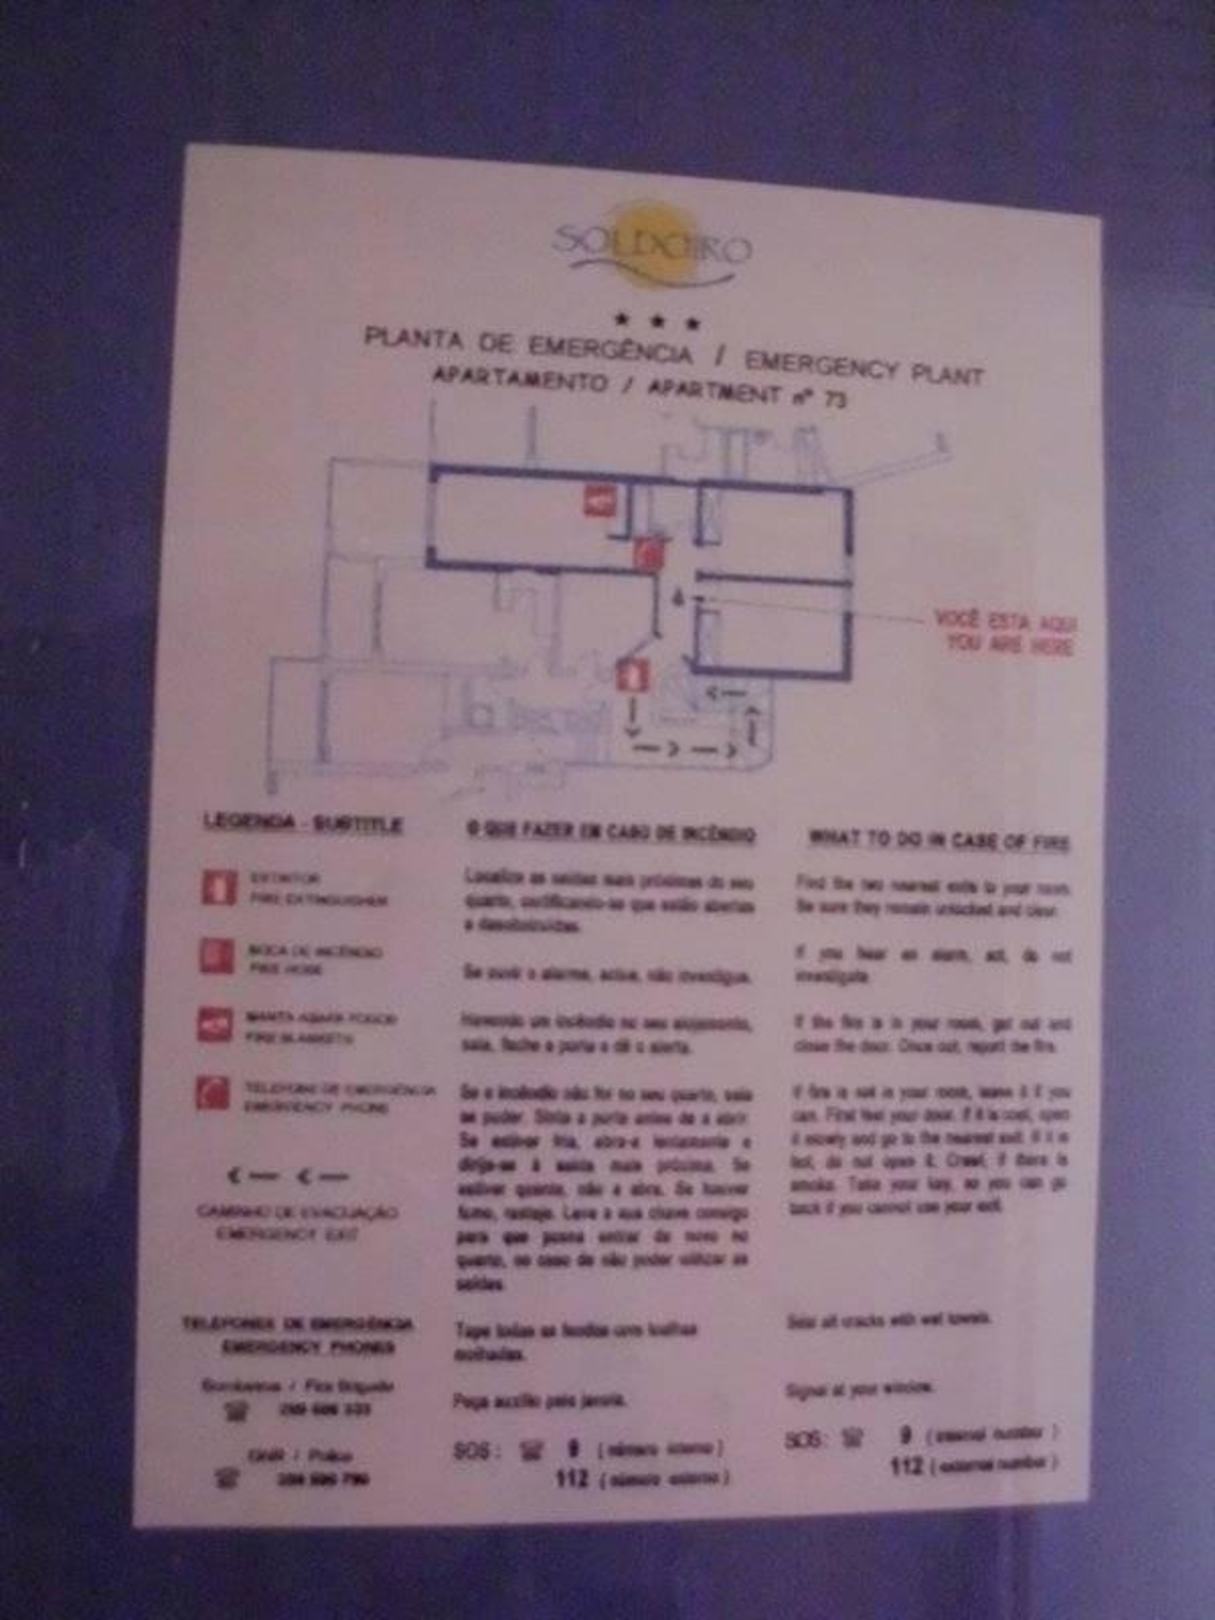 SOLDOIRO
PLANTA DE EMERGÊNCIA / EMERGENCY PLANT
APARTAMENTO / APARTMENT nº 73
VOCÊ ESTA AQUI
YOU ARE HERE
LEGENDA - SUBTITLE
EXTINTOR
FIRE EXTINGUISHER
BOCA DE INCÊNDIO
FIRE HOSE
MANTA ABAFA FOGOS
FIRE BLANKETS
TELEFONE DE EMERGÊNCIA
EMERGENCY PHONE
CAMINHO DE EVACUAÇÃO
EMERGENCY EXIT
TELEFONES DE EMERGÊNCIA
EMERGENCY PHONES
Bombeiros / Fire Brigade
GNR / Police
O QUE FAZER EM CASO DE INCÊNDIO
Localize as saídas mais próximas do seu
quarto, certificando-se que estão abertas
e desobstruídas.
Se ouvir o alarme, actue, não investigue.
Havendo um incêndio no seu alojamento,
saia, feche a porta e dê o alerta.
Se o incêndio não for no seu quarto, saia
se puder. Sinta a porta antes de a abrir.
Se estiver fria, abra-a lentamente e
dirija-se à saída mais próxima. Se
estiver quente, não a abra. Se houver
fumo, rasteje. Leve a sua chave consigo
para que possa entrar de novo no
quarto, no caso de não poder utilizar as
saídas.
Tape todas as fendas com toalhas
molhadas.
Peça auxílio pela janela.
SOS: 9 (número interno)
112 (número externo)
WHAT TO DO IN CASE OF FIRE
Find the two nearest exits to your room.
Be sure they remain unlocked and clear.
If you hear an alarm, act, do not
investigate.
If the fire is in your room, get out and
close the door. Once out, report the fire.
If fire is not in your room, leave it if you
can. First feel your door. If it is cool, open
it slowly and go to the nearest exit. If it is
hot, do not open it. Crawl, if there is
smoke. Take your key, so you can go
back if you cannot use your exit.
Seal all cracks with wet towels.
Signal at your window.
SOS: 9 (internal number)
112 (external number)